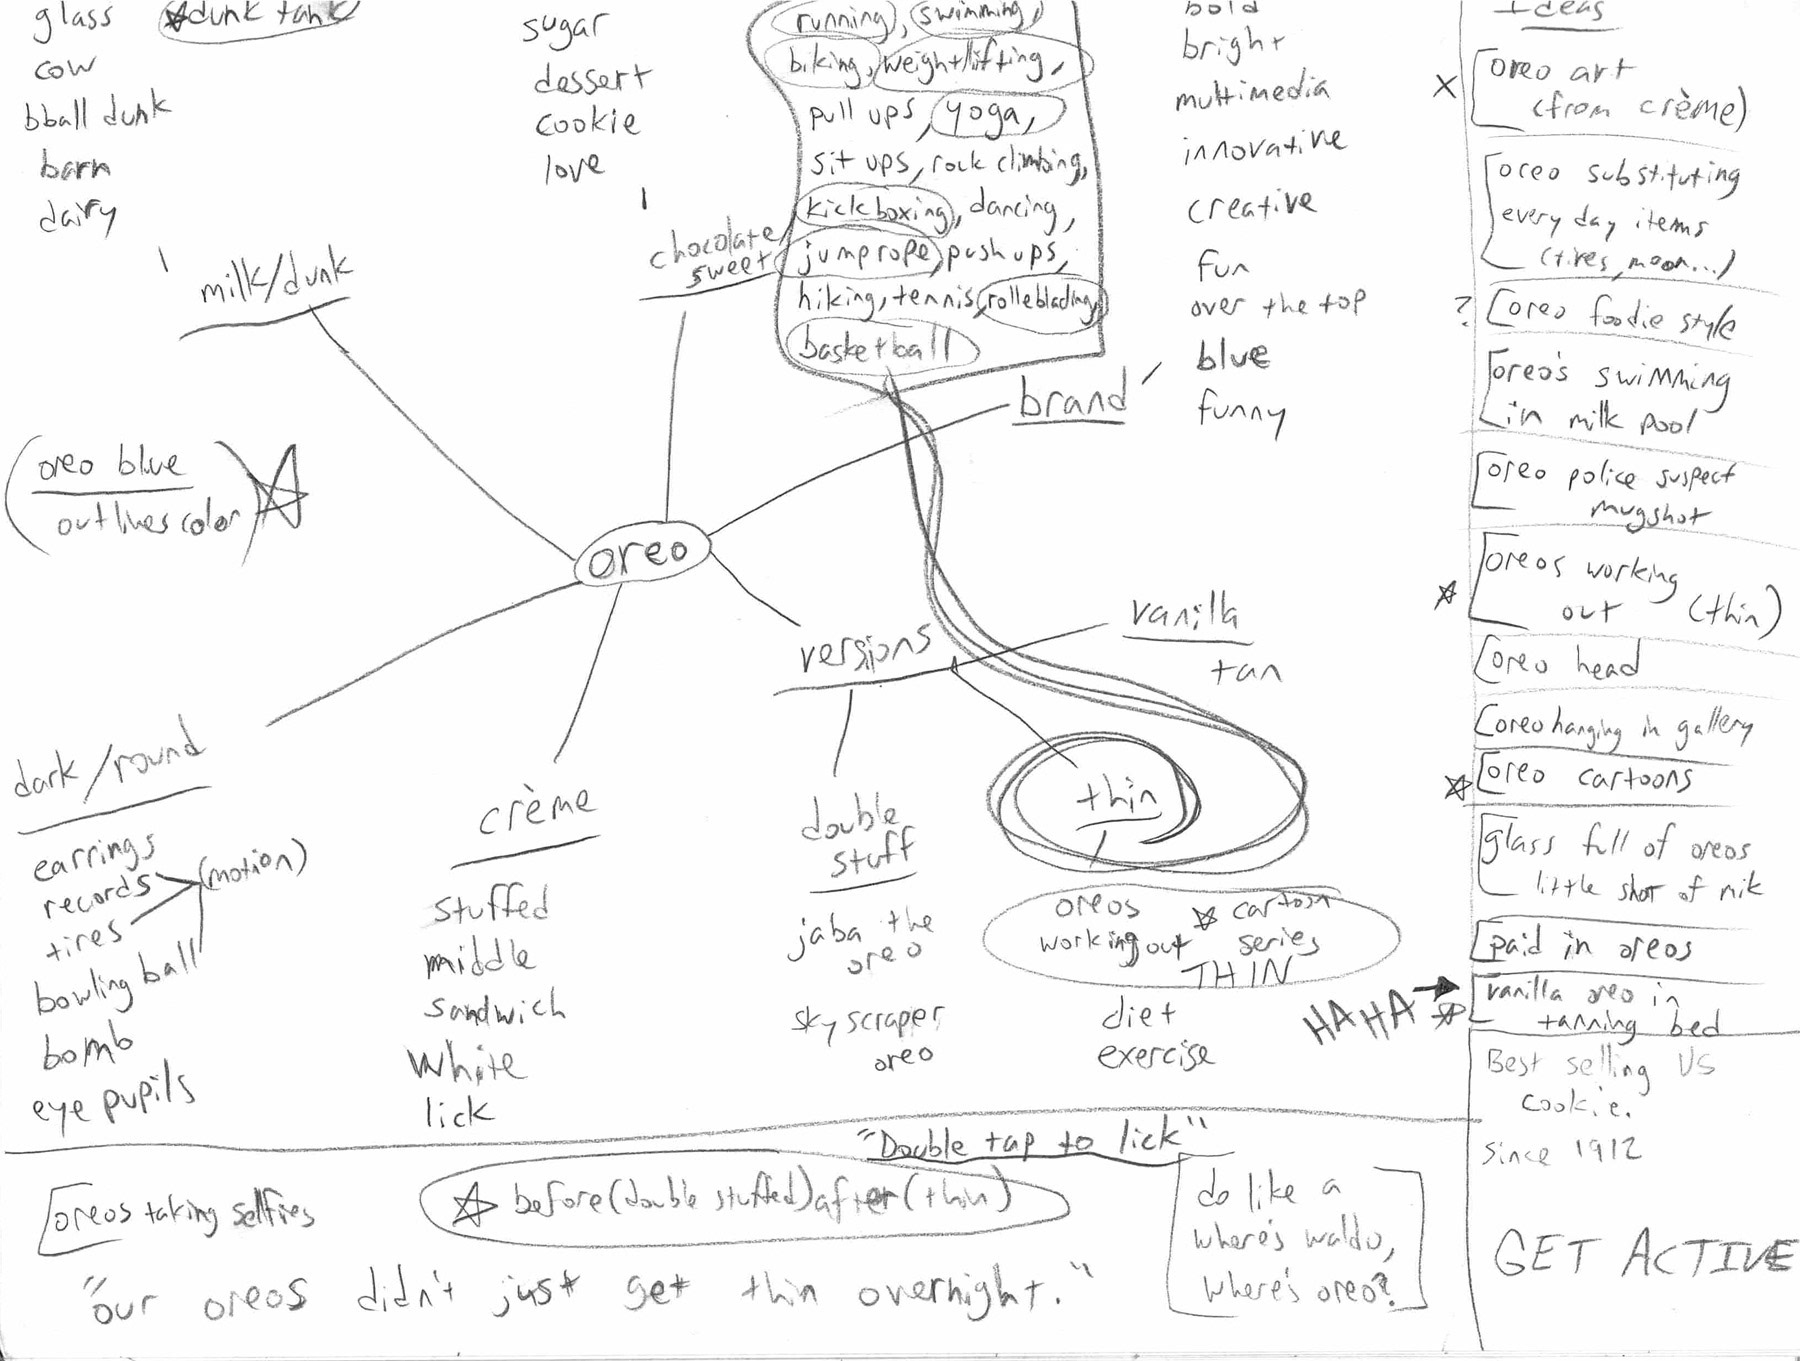 glass
dunk tank
cow
bball dunk
barn
dairy
milk/dunk
sugar
dessert
cookie
love
chocolate/
sweet
running, swimming,
biking, weightlifting,
pull ups, yoga,
sit ups, rock climbing,
kickboxing, dancing,
jumprope, push ups,
hiking, tennis, rolleblading,
basketball
brand
bold
bright
multimedia
innovative
creative
fun
over the top
blue
funny
(oreo blue
outlines color)
oreo
versions
vanilla
tan
thin
oreos
working out
cartoon
series
THIN
diet
exercise
double
stuff
jaba the
oreo
sky scraper
oreo
crème
stuffed
middle
sandwich
white
lick
dark/round
earrings
records
(motion)
tires
bowling ball
bomb
eye pupils
Ideas
X
oreo art
(from crème)
oreo substituting
every day items
(tires, moon...)
?
oreo foodie style
oreo's swimming
in milk pool
oreo police suspect
mugshot
oreos working
out (thin)
oreo head
oreo hanging in gallery
oreo cartoons
glass full of oreos
little shot of mik
paid in oreos
HAHA
vanilla oreo in
tanning bed
Best selling US
cookie.
since 1912
GET ACTIVE
"Double tap to lick"
oreos taking selfies
before (double stuffed) after (thin)
do like a
where's waldo,
where's oreo?
"our oreos didn't just get thin overnight."